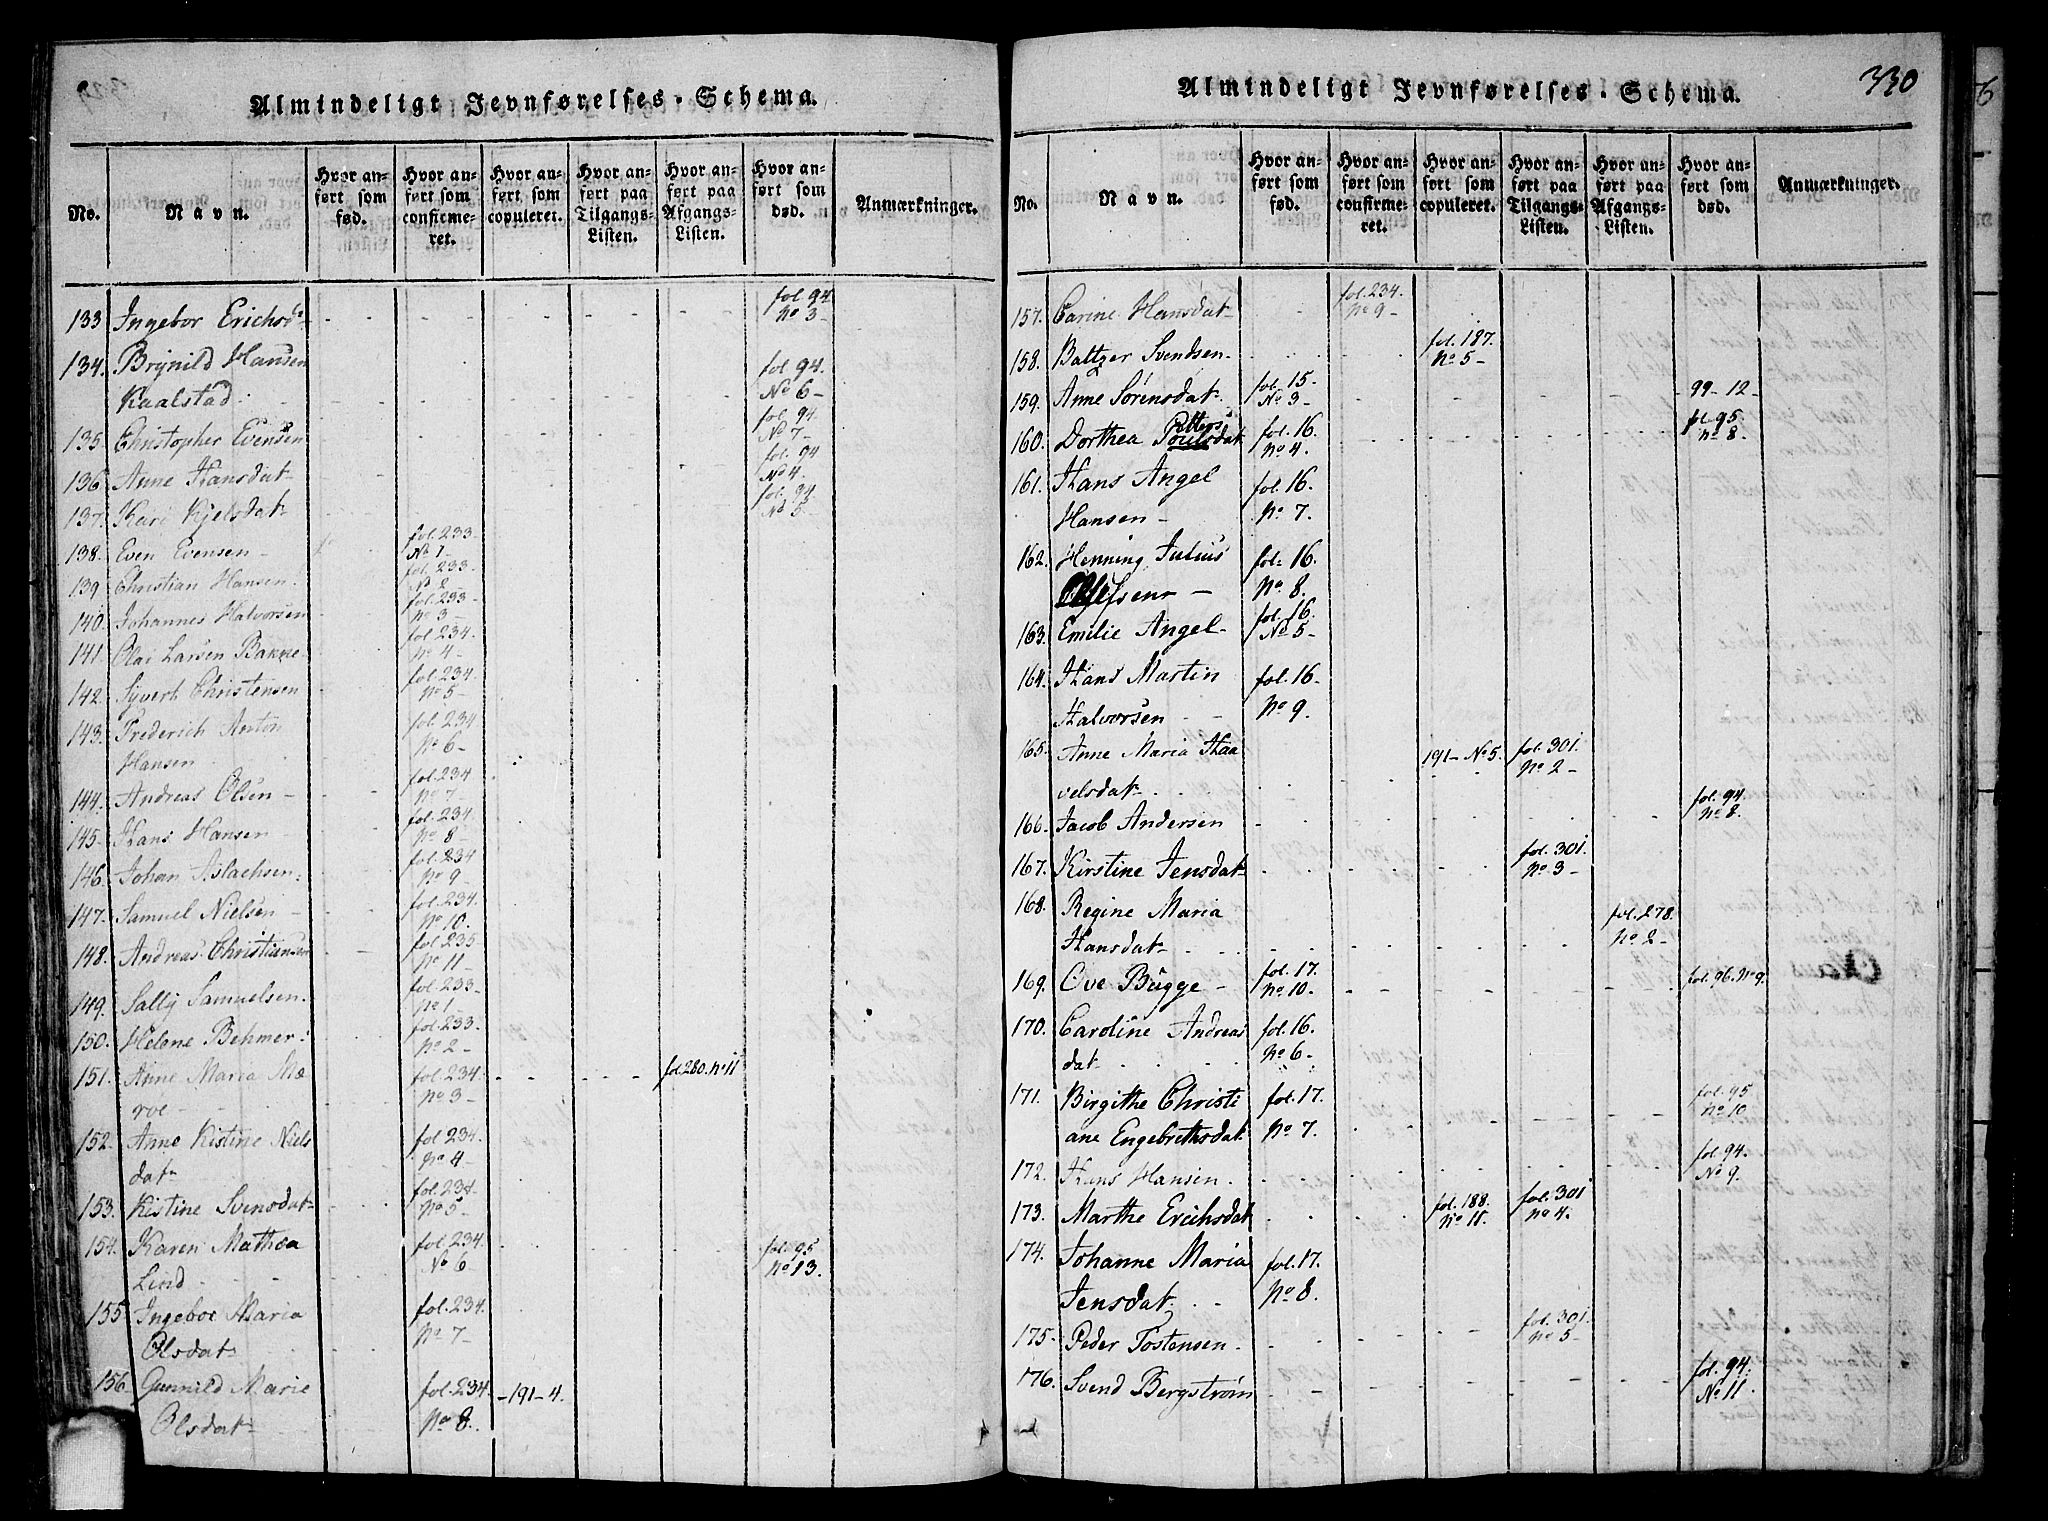 Almindeligt Jevnførelses-Schema.
No. Navn. Hvor anført som fød. Hvor anført som confirmeret. Hvor anført som copuleret. Hvor anført paa Tilgangs-Listen. Hvor anført paa Afgangs-Listen. Hvor anført som død. Anmærkninger.
133 Ingebor Erichsd fol. 94 No 3
134. Brynild Hansen
Kaalstad fol 94. No 6
135 Christopher Evensen fol. 94 No 7
136 Anne Hansdat fol. 94 No 4.
137. Kari Kjelsdat fol. 94. No 5
138. Even Evensen fol. 233 No 1
139. Christian Hansen. fol. 233. No 2
140. Johannes Halvorsen fol. 233 No 3
141. Olai Larsen Bakke fol. 234. No 4
142. Syvert Christensen fol. 234. No 5
143. Frederich Anton
Hansen fol. 234 No 6
144. Andreas Olsen fol. 234 No 7
145. Hans Hansen fol. 234 No 8
146. Johan Aslachsen. fol. 234 No 9
147. Samuel Nielsen fol. 234. No 10.
148. Andreas Christiansen fol. 235 No 11
149. Sally Samuelsen. fol. 233 No 1
150. Helene Behmer. fol. 233. No 2
151. Anne Maria Mæ
roe fol. 234 No 3 fol. 280. No 11
152. Anne Kistine Niels
dat fol. 234. No 4
153. Kistine Svensdat fol. 234 No 5
154. Karen Mathea
Lind fol. 234. No 6 fol. 95 No 13.
155 Ingebor Maria
Olsdat fol. 234. No 7
156 Gunnild Marie
Olsdat fol. 234. No 8. 191-4.
Almindeligt Jevnførelses-Schema. 330
No. Navn. Hvor anført som fød. Hvor anført som confirmeret. Hvor anført som copuleret. Hvor anført paa Tilgangs-Listen. Hvor anført paa Afgangs-Listen. Hvor anført som død. Anmærkninger.
157. Carine Hansdat fol. 234. No 9
158. Baltzer Svendsen fol. 187. No 5
159. Anne Sørensdat fol. 15 No 3 99-12
160. Dorthea Poulsdat Petters fol. 16. No 4. fol. 95. No 8.
161. Hans Angel
Hansen fol. 16. No 7.
162. Henning Julius fol. 16. No 8.
163. Emilie Angel fol. 16. No 5
164. Hans Martin
Halvorsen fol. 16. No 9.
165. Anne Maria Haa
velsdat 191- No 5. fol. 301. No 2
166. Jacob Andersen fol. 94. No 8.
167. Kirstine Jensdat fol. 301. No 3
168. Regine Maria
Hansdat fol. 278. No 2
169. Ove Bugge fol. 17. No 10. fol. 96. No 9.
170. Caroline Andreas
dat fol. 16. No 6
171. Birgithe Christi
ane Engebrethsdat fol. 17. No 7. fol. 95 No 10
172. Hans Hansen fol. 94. No 9.
173. Marthe Erichsdat fol. 188. No 11. fol. 301 No 4.
174. Johanne Maria
Jensdat fol. 17. No 8.
175 Peder Tostensen fol. 301. No 5
176. Svend Bergstrøm fol. 94. No 11.